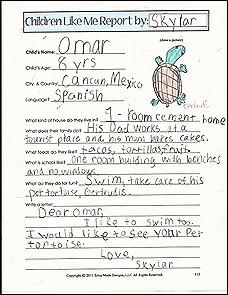 Children Like Me Report by: Skylar
(draw a picture)
Child's Name: Omar
Child's Age: 8 yrs
City & Country: Cancun, Mexico
Language? Spanish
Gertrudis
What kind of house do they live in? 1-room cement home
What does their family do? His Dad works at a
tourist place and his mum bakes cakes.
What foods do they eat? tacos, tortillas, fruit
What is school like? one room building with benches
and no windows
What do they do for fun? Swim, take care of his
pet tortoise, Gertrudis.
Write a letter:
Dear Omar,
I like to swim too.
I would like to see your pet
tortoise.
Love,
Skylar
Copyright © 2011 Erica Made Designs, LLC All Rights Reserved